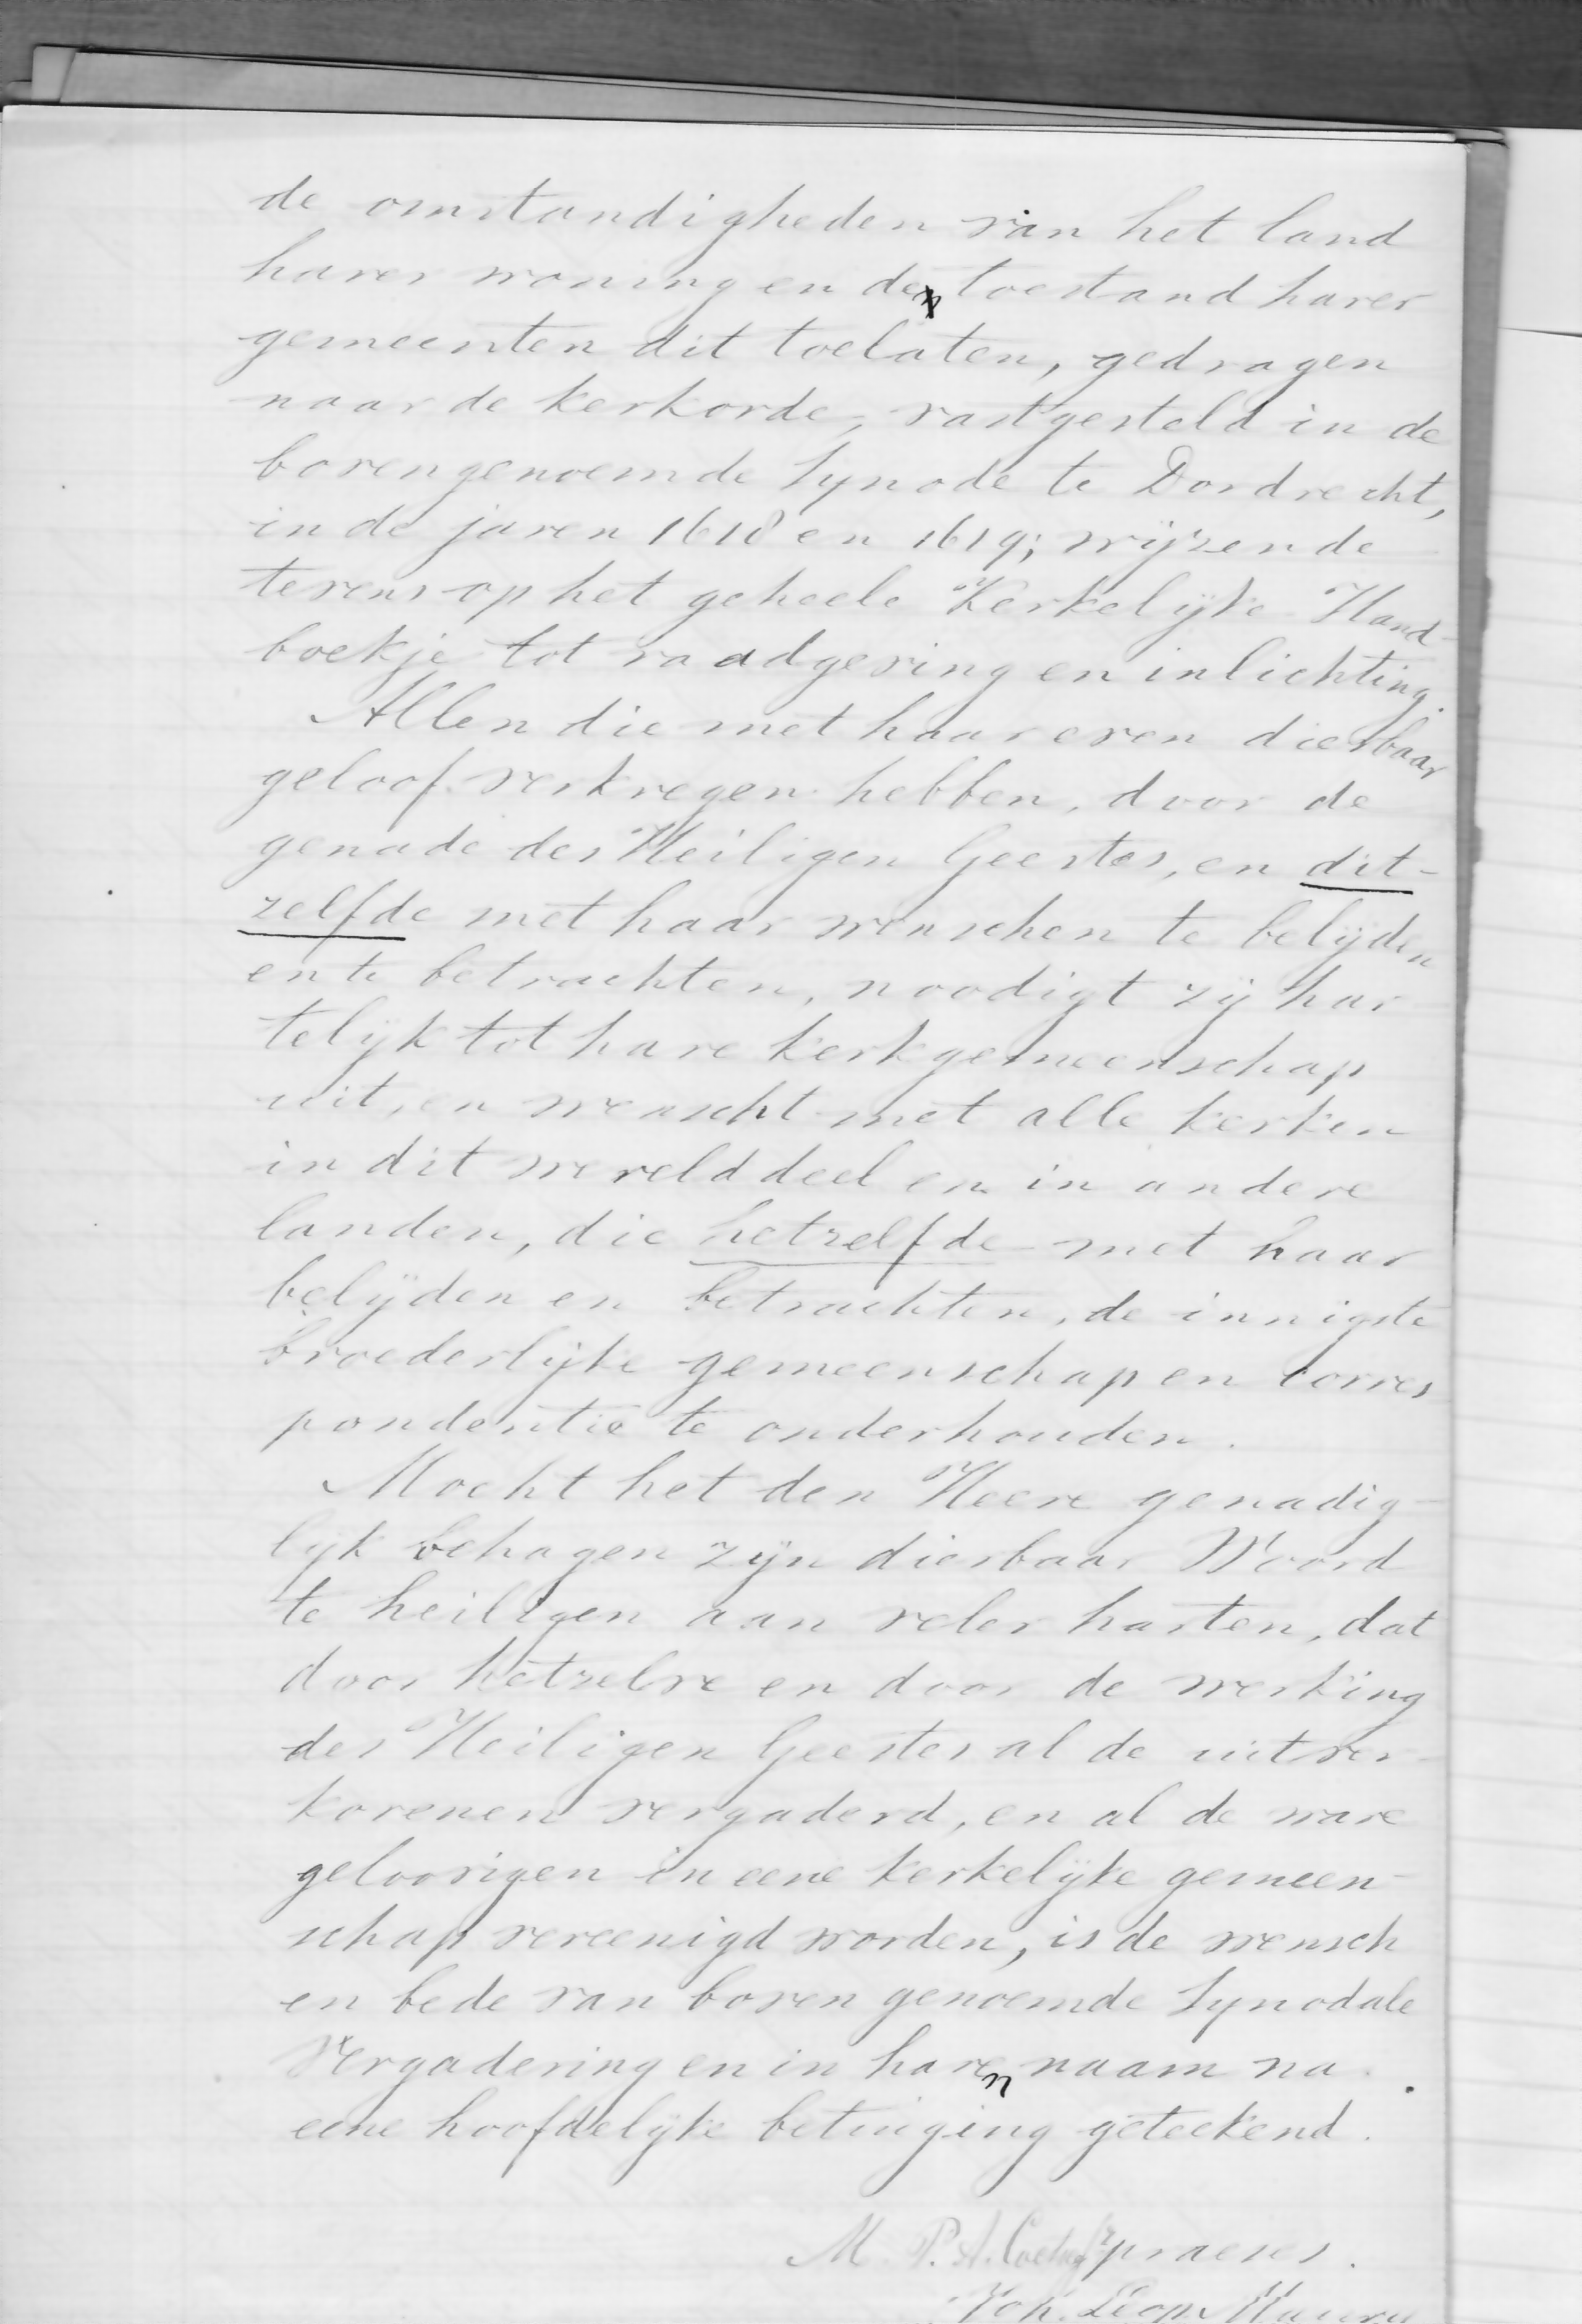 de omstandigheden van het land
harer woning en de toestand harer
gemeenten dit toelaten, gedragen
naar de kerkorde, vastgesteld in de
bovengenoemde Synode te Dordrecht,
in de jaren 1618 en 1619; wijzende
tevens op het geheele Kerkelijke Hand-
boekje tot raadgeving en inlichting.
Allen die met haar even dierbaar
geloof verkregen hebben, door de
genade des Heiligen Geestes, en dit-
zelfde met haar wenschen te belijden
en te betrachten, noodigt zij har
telijk tot hare kerkgemeenschap
uit, en wenscht met alle kerken
in dit werelddeel en in andere
landen, die hetzelfde met haar
belijden en betrachten, de innigste
broederlijke gemeenschap en corres
pondentie te onderhouden.
Mocht het den Heere genadig-
lijk behagen zijn dierbaar Woord
te heiligen aan veler harten, dat
door hetzelve en door de werking
des Heiligen Geestes al de uitver-
korenen vergaderd, en al de ware
geloovigen in eene kerkelijke gemeen-
schap vereenigd worden, is de wensch
en bede van boven genoemde Synodale
Vergadering en in haren naam na
eene hoofdelijke betuiging geteekend.
M. P. A. Coetzee praeses.
Joh. Leop.